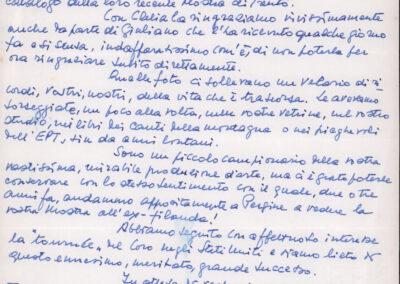 catalogo della loro recente mostra di Trento.
Con Clelia la ringraziamo vivissimamente
anche da parte di Giuliano che l'ha ricevuto qualche giorno
fa e si scusa, indaffaratissimo com'è, di non poterla per
ora ringraziare subito direttamente.
Quelle foto ci sollevano un velario di ri
cordi, vostri, nostri, della vita che è trascorsa. Le avevamo
sorseggiate, un poco alla volta, nelle vostre vetrine, nel vostro
studio, nei libri dei canti della montagna o nei pieghevoli
dell'EPT, sin da anni lontani.
Sono un piccolo campionario della vostra
vastissima, mirabile produzione d'arte, ma ci è grato poterle
conservare con lo stesso sentimento con il quale, due o tre
anni fa, andammo appositamente a Pergine a vedere la
vostra mostra all'ex-filanda!
Abbiamo seguito con affettuoso interesse
la "tournée" del Coro negli Stati Uniti e siamo lieti
questo ennesimo, meritato, grande successo.
In attesa di